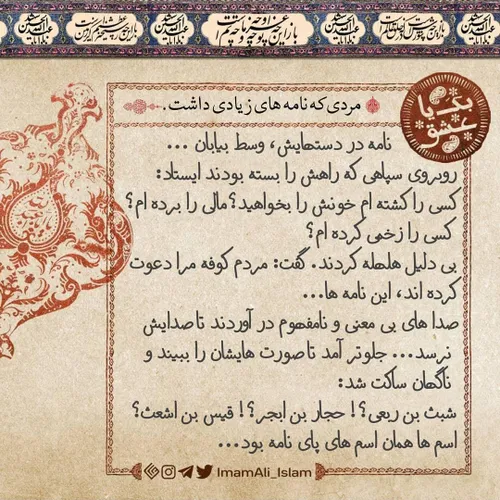 باز این چه شورش است
مردی که نامه های زیادی داشت.
نامه در دستهایش، وسط بیابان ...
روبروی سپاهی که راهش را بسته بودند ایستاد:
کسی را کشته ام خونش را بخواهید؟ مالی را برده ام؟
کسی را زخمی کرده ام؟
بی دلیل هلهله کردند. گفت: مردم کوفه مرا دعوت
کرده اند، این نامه ها...
صدا های بی معنی و نامفهوم در آوردند تا صدایش
نرسد... جلوتر آمد تا صورت هایشان را ببیند و
ناگهان ساکت شد:
شبث بن ربعی؟! حجار بن ابجر؟! قیس بن اشعث؟
اسم ها همان اسم های پای نامه بود...
ImamAli_Islam